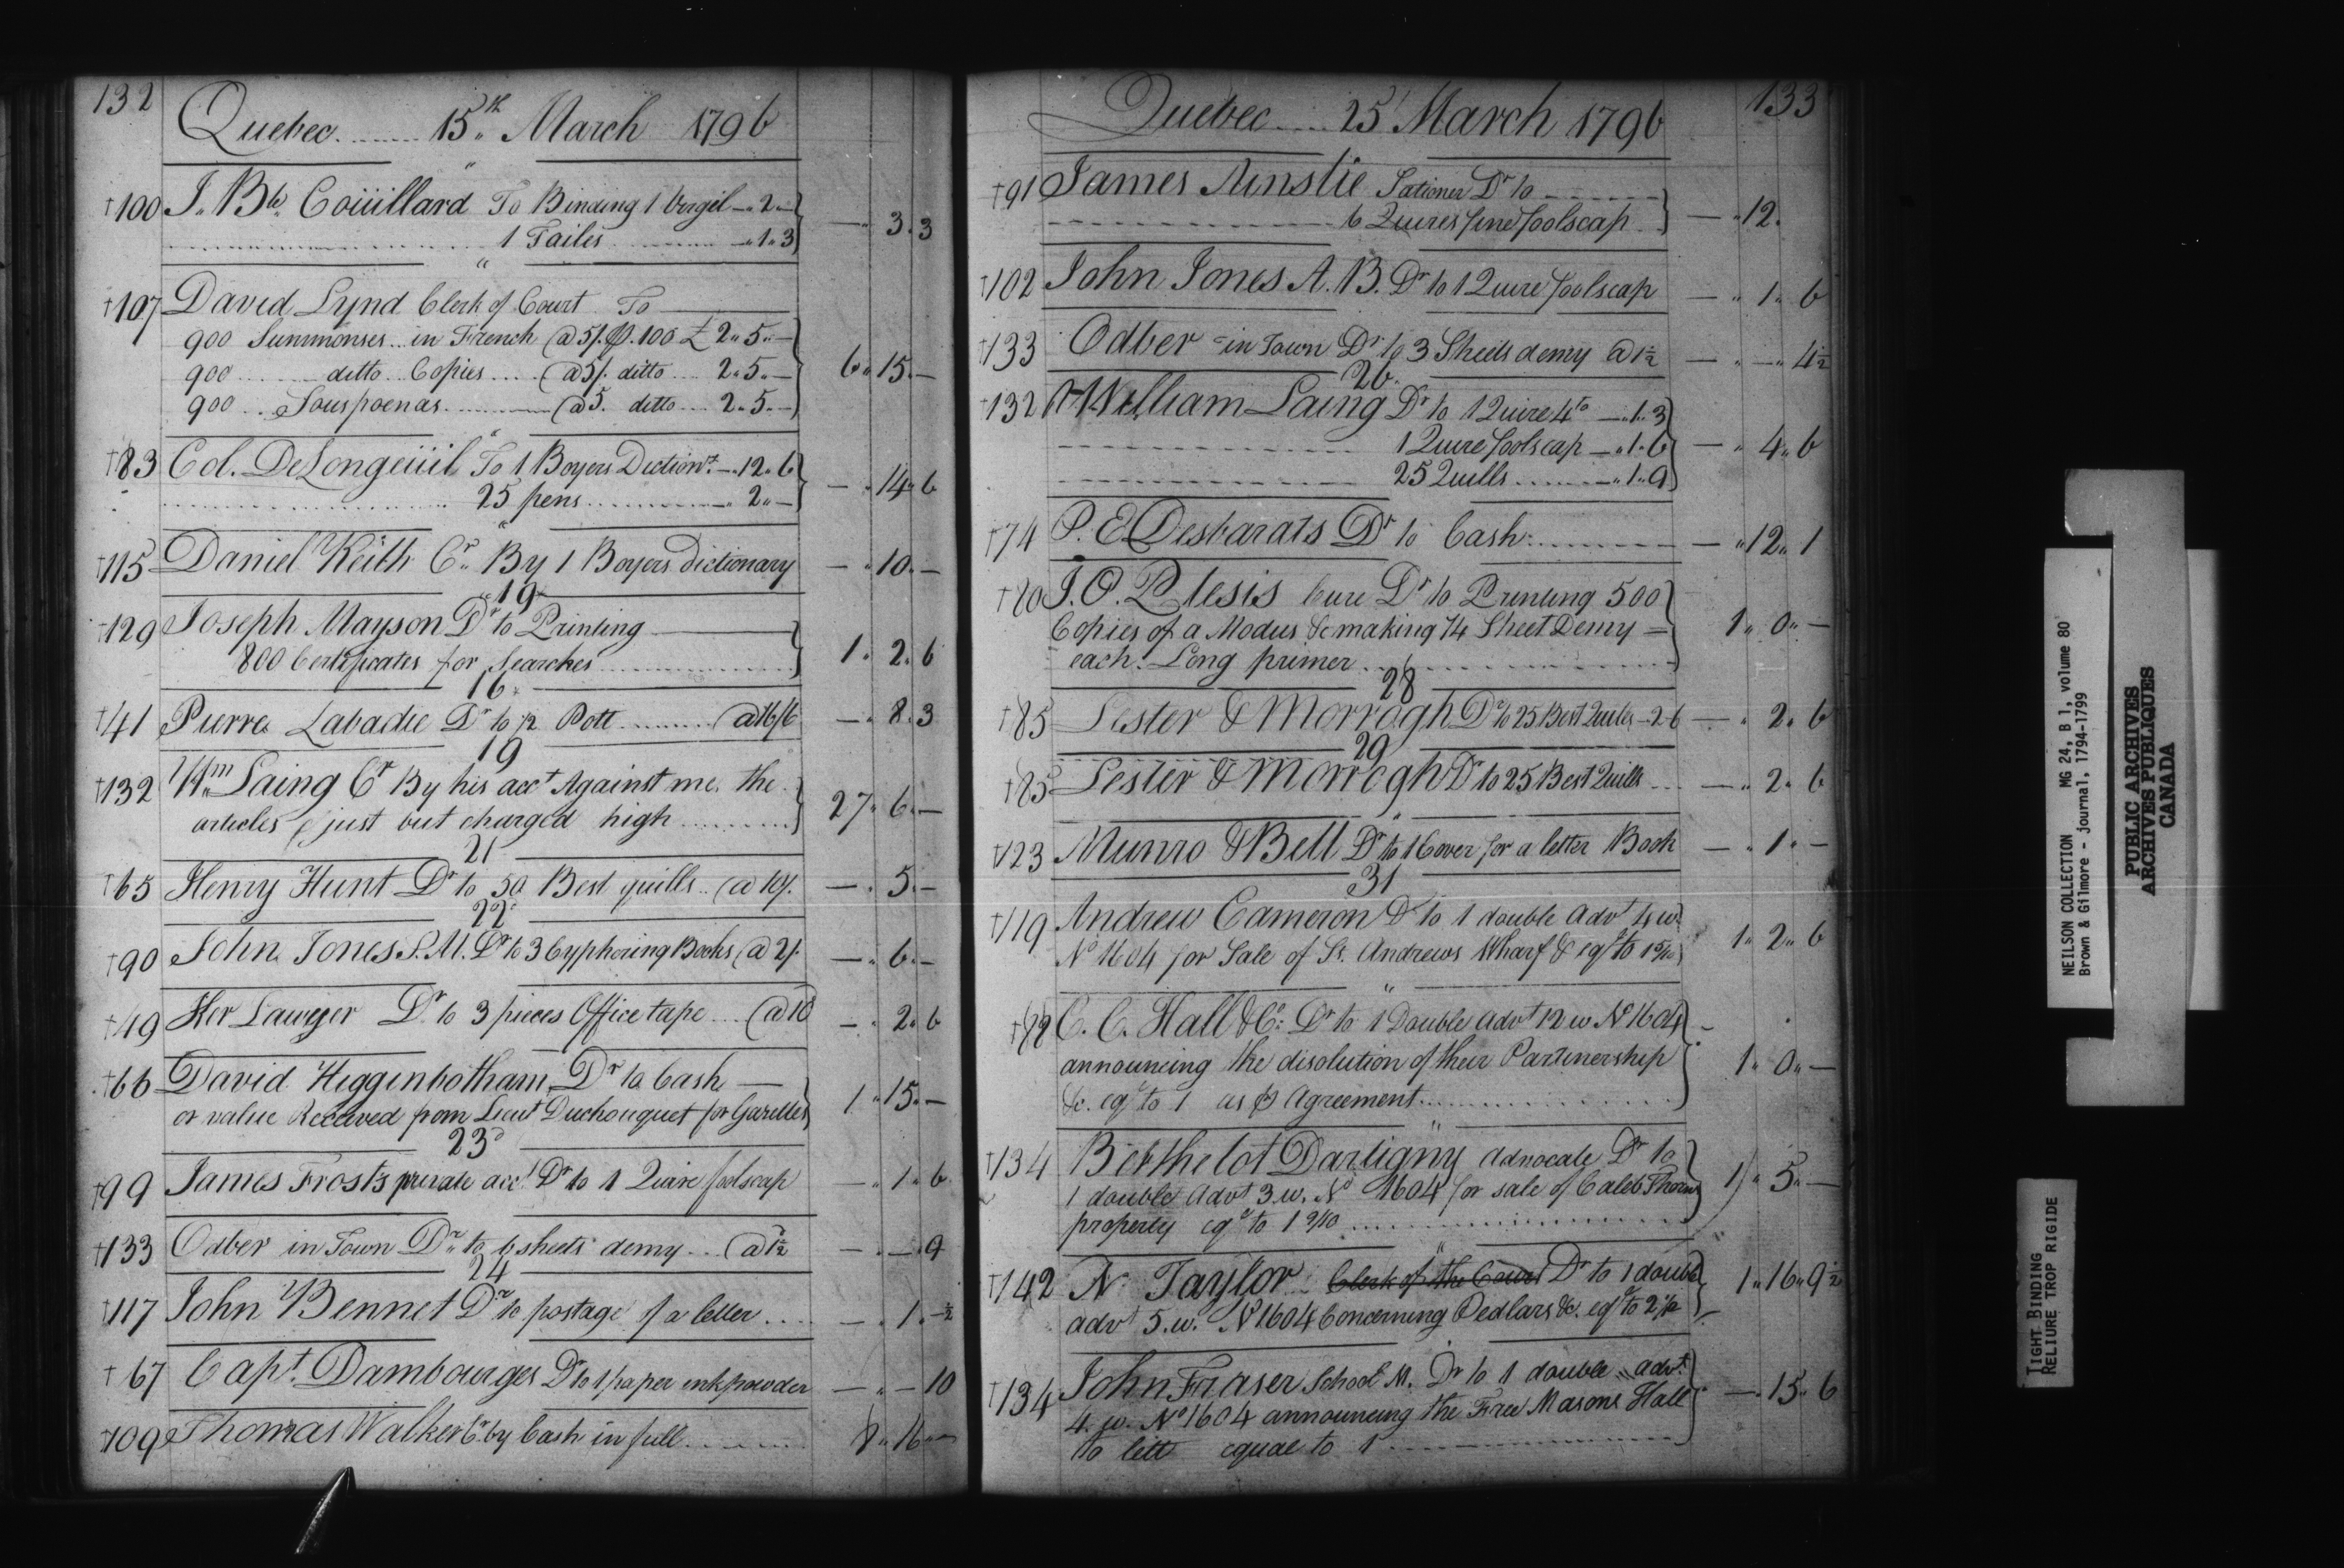 132
Quebec ...... 15th March 1796
"
†100 J. Bte. Coüillard To Binding 1 Virgil — 2 —
1 Tailes — „ 1 „ 3 — „ 3 „ 3
"
†107 David Lynd Clerk of Court To
900 Summonses .. in French @ 5/. ₱. 100 £ 2 „ 5 „ —
900 ...... ditto .. Copies .... @ 5/. ditto ... 2 „ 5 „ — 6 „ 15 „ —
900 .. Souspoenas ........ @ 5. ditto ... 2 „ 5 „ —
"
†83 Col. DeLongeüil To 1 Boyers Diction.y — „ 12 „ 6
25 pens ........ „ 2 „ — — „ 14 „ 6
"
†115 Daniel Keith Cr. By 1 Boyers dictionary — „ 10 „ —
"19"
†129 Joseph Mayson Dr to Printing
800 Certificates for Searches ........ 1 „ 2 „ 6
16
†41 Pierre Labadie Dr to 1/2 Pott ........ @ 16/6 — „ 8 „ 3
19
†132 Wm Laing Cr By his acct Against me, the
articles just but charged high ........ 27 „ 6 „ —
21
†65 Henry Hunt Dr to 50 Best quills .. @ 10/. — „ 5 „ —
22
†90 John Jones S. M. Dr to 3 Cyphoring Books @ 2/. — „ 6 „ —
†49 Ker Lawyer Dr. to 3 pieces Office tape ... @ 10 — „ 2 „ 6
†66 David Higgenbotham Dr to Cash —
or value Received from Lieut Duchouquet for Gazettes 1 „ 15 „ —
23d
†99 James Frost's private acct Dr to 1 Quire foolscap — „ 1 „ 6
†133 Odber in Town Dr. to 6 sheets demy ... @ 1½ — „ — „ 9
24
†117 John Bennet Dr to postage of a letter .... — „ 1 „ — ½
†67 Capt. Dambourges Dr to 1 paper ink powder — „ — 10
†109 Thomas Walker Cr. by Cash in full ........ 8 „ 16 „ —
133
Quebec ..... 25 March 1796
†91 James Ainslie Sationer Dr to
6 Quires fine foolscap — „ 12 „
†102 John Jones A. B. Dr to 1 Quire foolscap — „ 1 „ 6
†133 Odber in Town Dr to 3 Sheets demy @ 1½ — „ — „ 4½
26
†132 William Laing Dr to 1 Quire 4to — „ 1 „ 3
1 Quire foolscap — „ 1 „ 6 — „ 4 „ 6
25 Quills ...... „ 1 „ 9
†74 P. E Desbarats Dr to Cash ........ — „ 12 „ 1
†80 J. O. Plesis Cure Dr to Printing 500
Copies of a Modus &c making 1/4 Sheet Demy — 1 „ 0 „ —
each. Long primer ........
28
†85 Lester & Morrogh Dr to 25 Best Quills — 2 „ 6 — „ 2 „ 6
29
†85 Lester & Morrogh Dr to 25 Best Quills ... — „ 2 „ 6
"
†123 Munro & Bell Dr to 1 Cover for a letter Book — „ 1 „ —
31
†119 Andrew Cameron Dr to 1 double Advt 4 w.
No 1604 for Sale of St. Andrews Wharf & eql to 1 5/10 1 „ 2 „ 6
"
C. C. Hall & Co: Dr to 1 Double advt 12 w No 1604
announcing the disolution of their Partinership
&c. eql to 1 as ₱ Agreement ........ 1 „ 0 „ —
"
†134 Berthelot Dartigny advocate Dr to
1 double Advt 3 w. No 1604 for sale of Caleb Thorns 1 „ 5 „ —
property eql to 1 9/10 ........
"
†142 N. Taylor Clerk of the Court Dr to 1 double 1 „ 16 „ 9½
advt 5. w. No 1604 Concerning Pedlars &c. eql to 2 1/2
†134 John Fraser School M. Dr to 1 double advt.
4. w. No 1604 announcing the Free Masons Hall — „ 15 „ 6
to lett equal to 1
NEILSON COLLECTION MG 24, B 1, volume 80
Brown & Gilmore - journal, 1794-1799
PUBLIC ARCHIVES
ARCHIVES PUBLIQUES
CANADA
TIGHT BINDING
RELIURE TROP RIGIDE